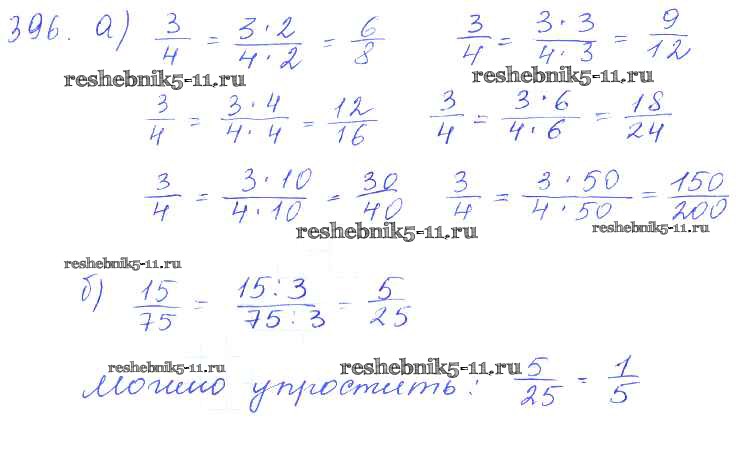 396. а) 3/4 = 3·2/4·2 = 6/8 3/4 = 3·3/4·3 = 9/12
reshebnik5-11.ru reshebnik5-11.ru
3/4 = 3·4/4·4 = 12/16 3/4 = 3·6/4·6 = 18/24
3/4 = 3·10/4·10 = 30/40 3/4 = 3·50/4·50 = 150/200
reshebnik5-11.ru reshebnik5-11.ru
reshebnik5-11.ru
б) 15/75 = 15:3/75:3 = 5/25
reshebnik5-11.ru reshebnik5-11.ru
Можно упростить: 5/25 = 1/5